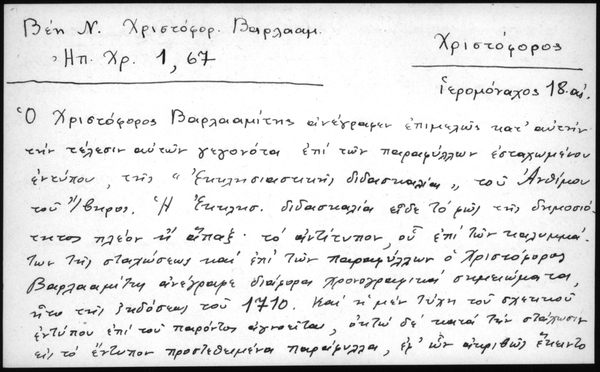 Βέη Ν. Χριστόφορ. Βαρλααμ.
Ἠπ. Χρ. 1, 67
Χριστόφορος
ἱερομόναχος 18. αἰ.
Ὁ Χριστόφορος Βαρλααμίτης ἀνέγραψεν ἐπιμελῶς κατ' αὐτὴν
τὴν τέλεσιν αὐτῶν γεγονότα ἐπὶ τῶν παραφύλλων ἐσταχωμένου
ἐντύπου, τῆς "Ἐκκλησιαστικῆς διδασκαλίας", τοῦ Ἀνθίμου
τοῦ Ἴβηρος. Ἡ Ἐκκλησ. διδασκαλία εἶδε τὸ φῶς τῆς δημοσιό-
τητος πλέον ἢ ἅπαξ· τὸ ἀντίτυπον, οὗ ἐπὶ τῶν καλυμμά-
των τῆς σταχώσεως καὶ ἐπὶ τῶν παραφύλλων ὁ Χριστόφορος
Βαρλααμίτης ἀνέγραψε διάφορα χρονογραφικὰ σημειώματα,
ἦτο τῆς ἐκδόσεως τοῦ 1710. Καὶ ἡ μὲν τύχη τοῦ σχετικοῦ
ἐντύπου ἐπὶ τοῦ παρόντος ἀγνοεῖται, ὀκτὼ δὲ κατὰ τὴν στάχωσιν
εἰς τὸ ἔντυπον προστεθειμένα παράφυλλα, ἐφ' ὧν ἀκριβῶς ἔκειντο